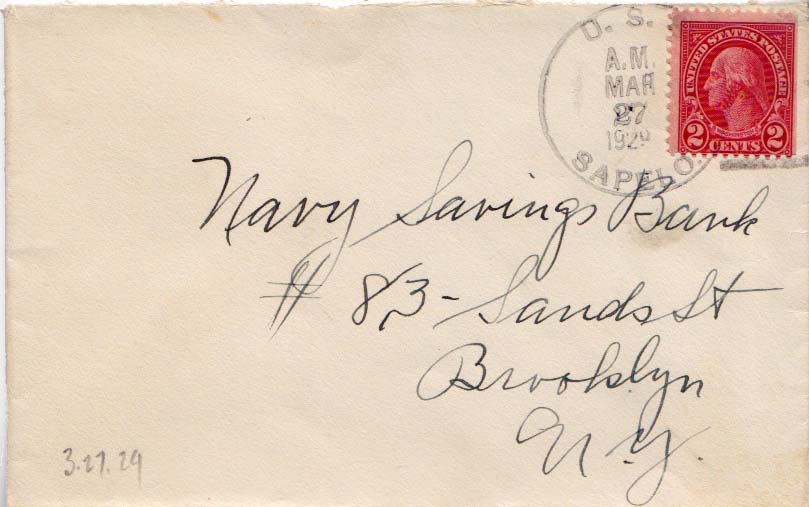 U. S. S.
A.M.
MAR
27
1929
SAPELO
UNITED STATES POSTAGE
WASHINGTON
2 CENTS 2
Navy Savings Bank
# 83 - Sands St
Brooklyn
N.Y.
3.27.29